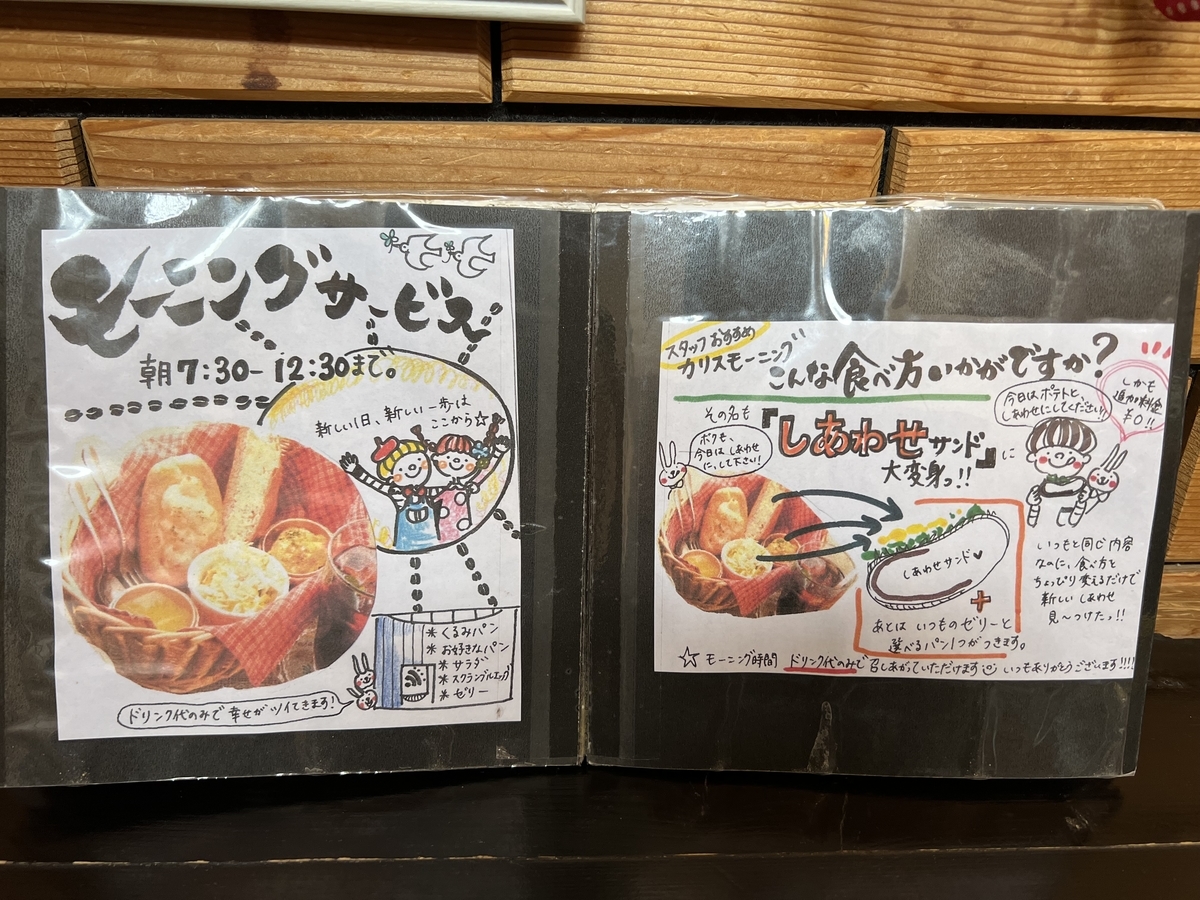 モーニングサービス
朝7:30-12:30まで。
新しい1日、新しい一歩は
ここから☆
*くるみパン
*お好きなパン
*サラダ
*スクランブルエッグ
*ゼリー
ドリンク代のみで幸せがツイてきます!
スタッフおすすめ
カリスモーニング
こんな食べ方いかがですか?
しかも
追加料金
¥0!!
今日はポテトと、
しあわせにしてください!
その名も
『しあわせサンド』に
大変身っ!!
ボクも、
今日はしあわせ
に、して下さい!
しあわせサンド♥
+
あとは いつものゼリーと
選べるパン1つがつきます。
いつもと同じ内容
なのに、食べ方を
ちょっぴり変えるだけで
新しい しあわせ
見〜つけたっ!!
☆モーニング時間 ドリンク代のみで召しあがっていただけます いつもありがとうございます!!!!